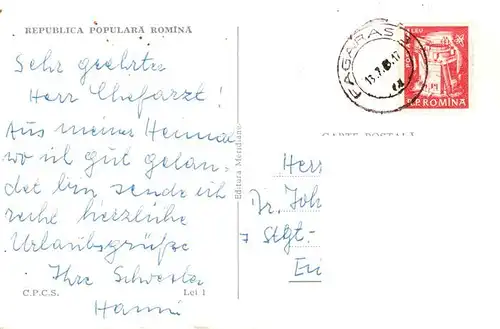 REPUBLICA POPULARĂ ROMÎNĂ
Sehr geehrter
Herr Chefarzt!
Aus meiner Heimat
wo ich gut gelan-
det bin sende ich
recht herzliche
Urlaubsgrüße
Ihre Schwester
Hanni
C.P.C.S.
Lei 1
Editura Meridiane
FĂGĂRAȘ
13.7.63.17
R.P.ROMINA
CARTE POSTALĂ
Herr
Dr. Joh
7 Stgt.-